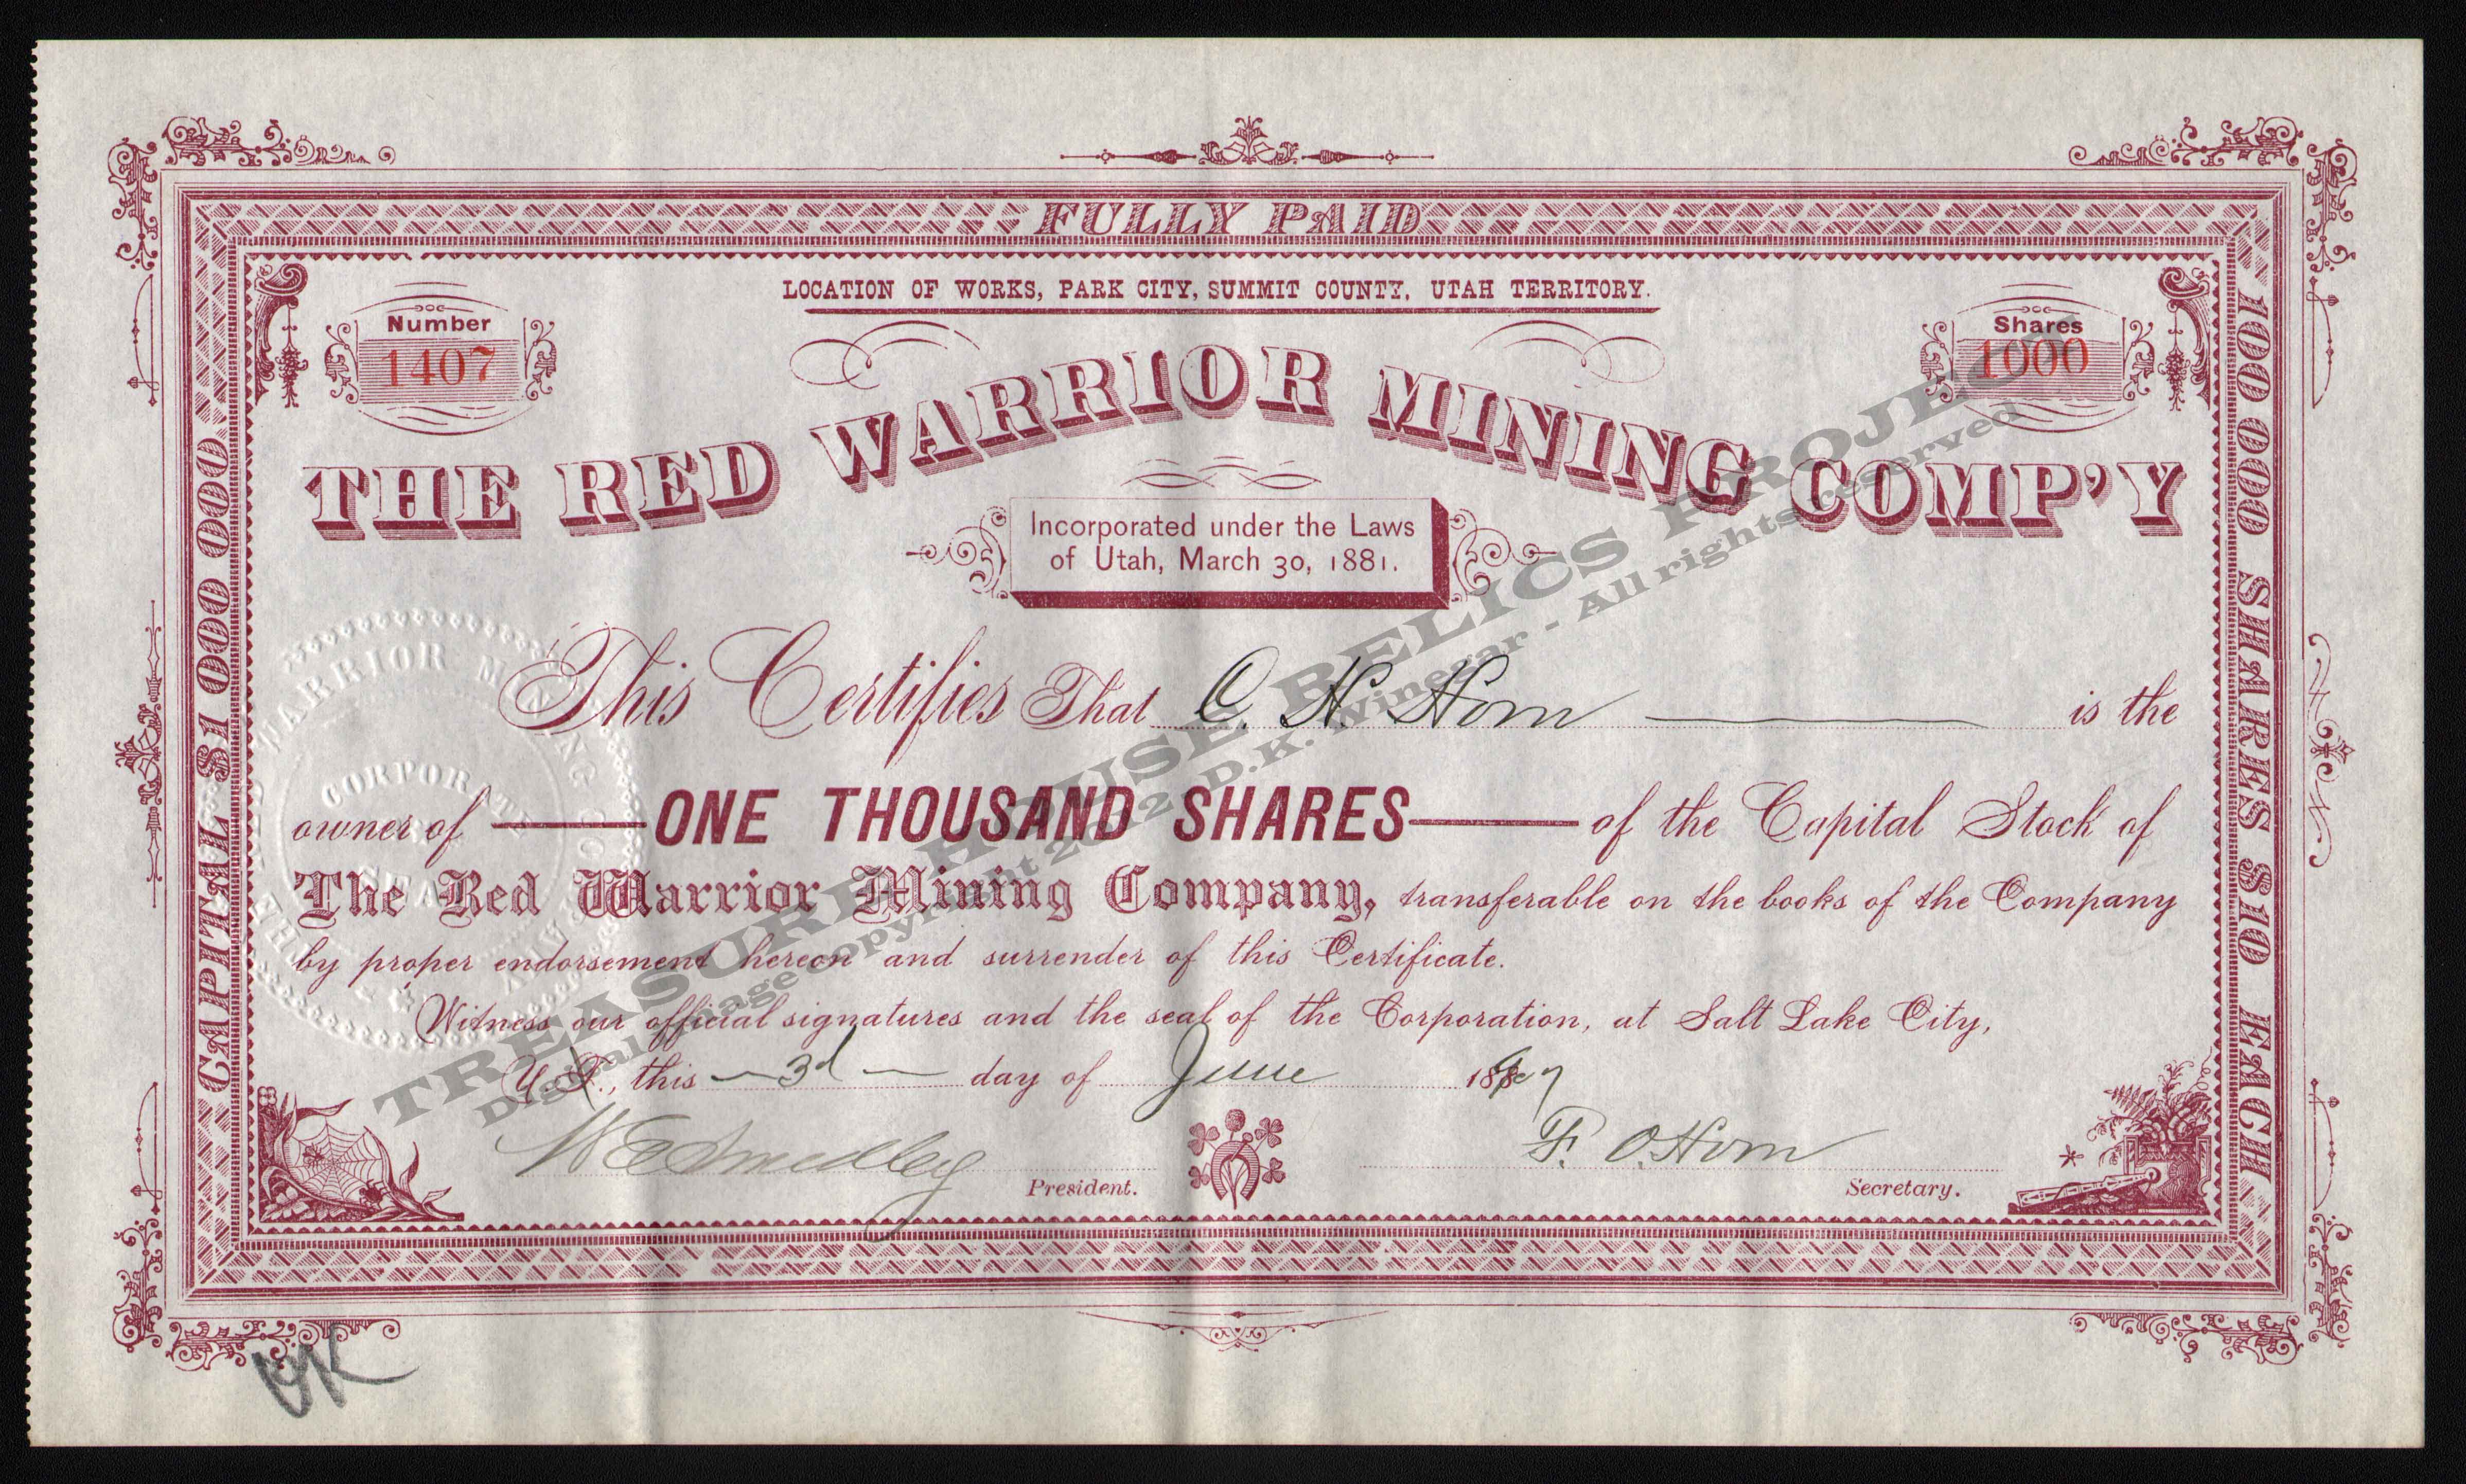 FULLY PAID
LOCATION OF WORKS, PARK CITY, SUMMIT COUNTY, UTAH TERRITORY.
Number
1407
Shares
1000
THE RED WARRIOR MINING COMP'Y
Incorporated under the Laws
of Utah, March 30, 1881.
CAPITAL $1 000 000
100 000 SHARES $10 EACH
This Certifies That C. H. Hom is the
owner of ONE THOUSAND SHARES of the Capital Stock of
The Red Warrior Mining Company, transferable on the books of the Company
by proper endorsement hereon and surrender of this Certificate.
Witness our official signatures and the seal of the Corporation, at Salt Lake City,
U.T., this 3d day of June 1897
W E Smedley
President.
F. O. Hom
Secretary.
THE RED WARRIOR MINING COMPANY
CORPORATE
SEAL
OK
TREASURE HOUSE RELICS PROJECT
Digital image copyright 2012 D.K. Winegar - All rights reserved